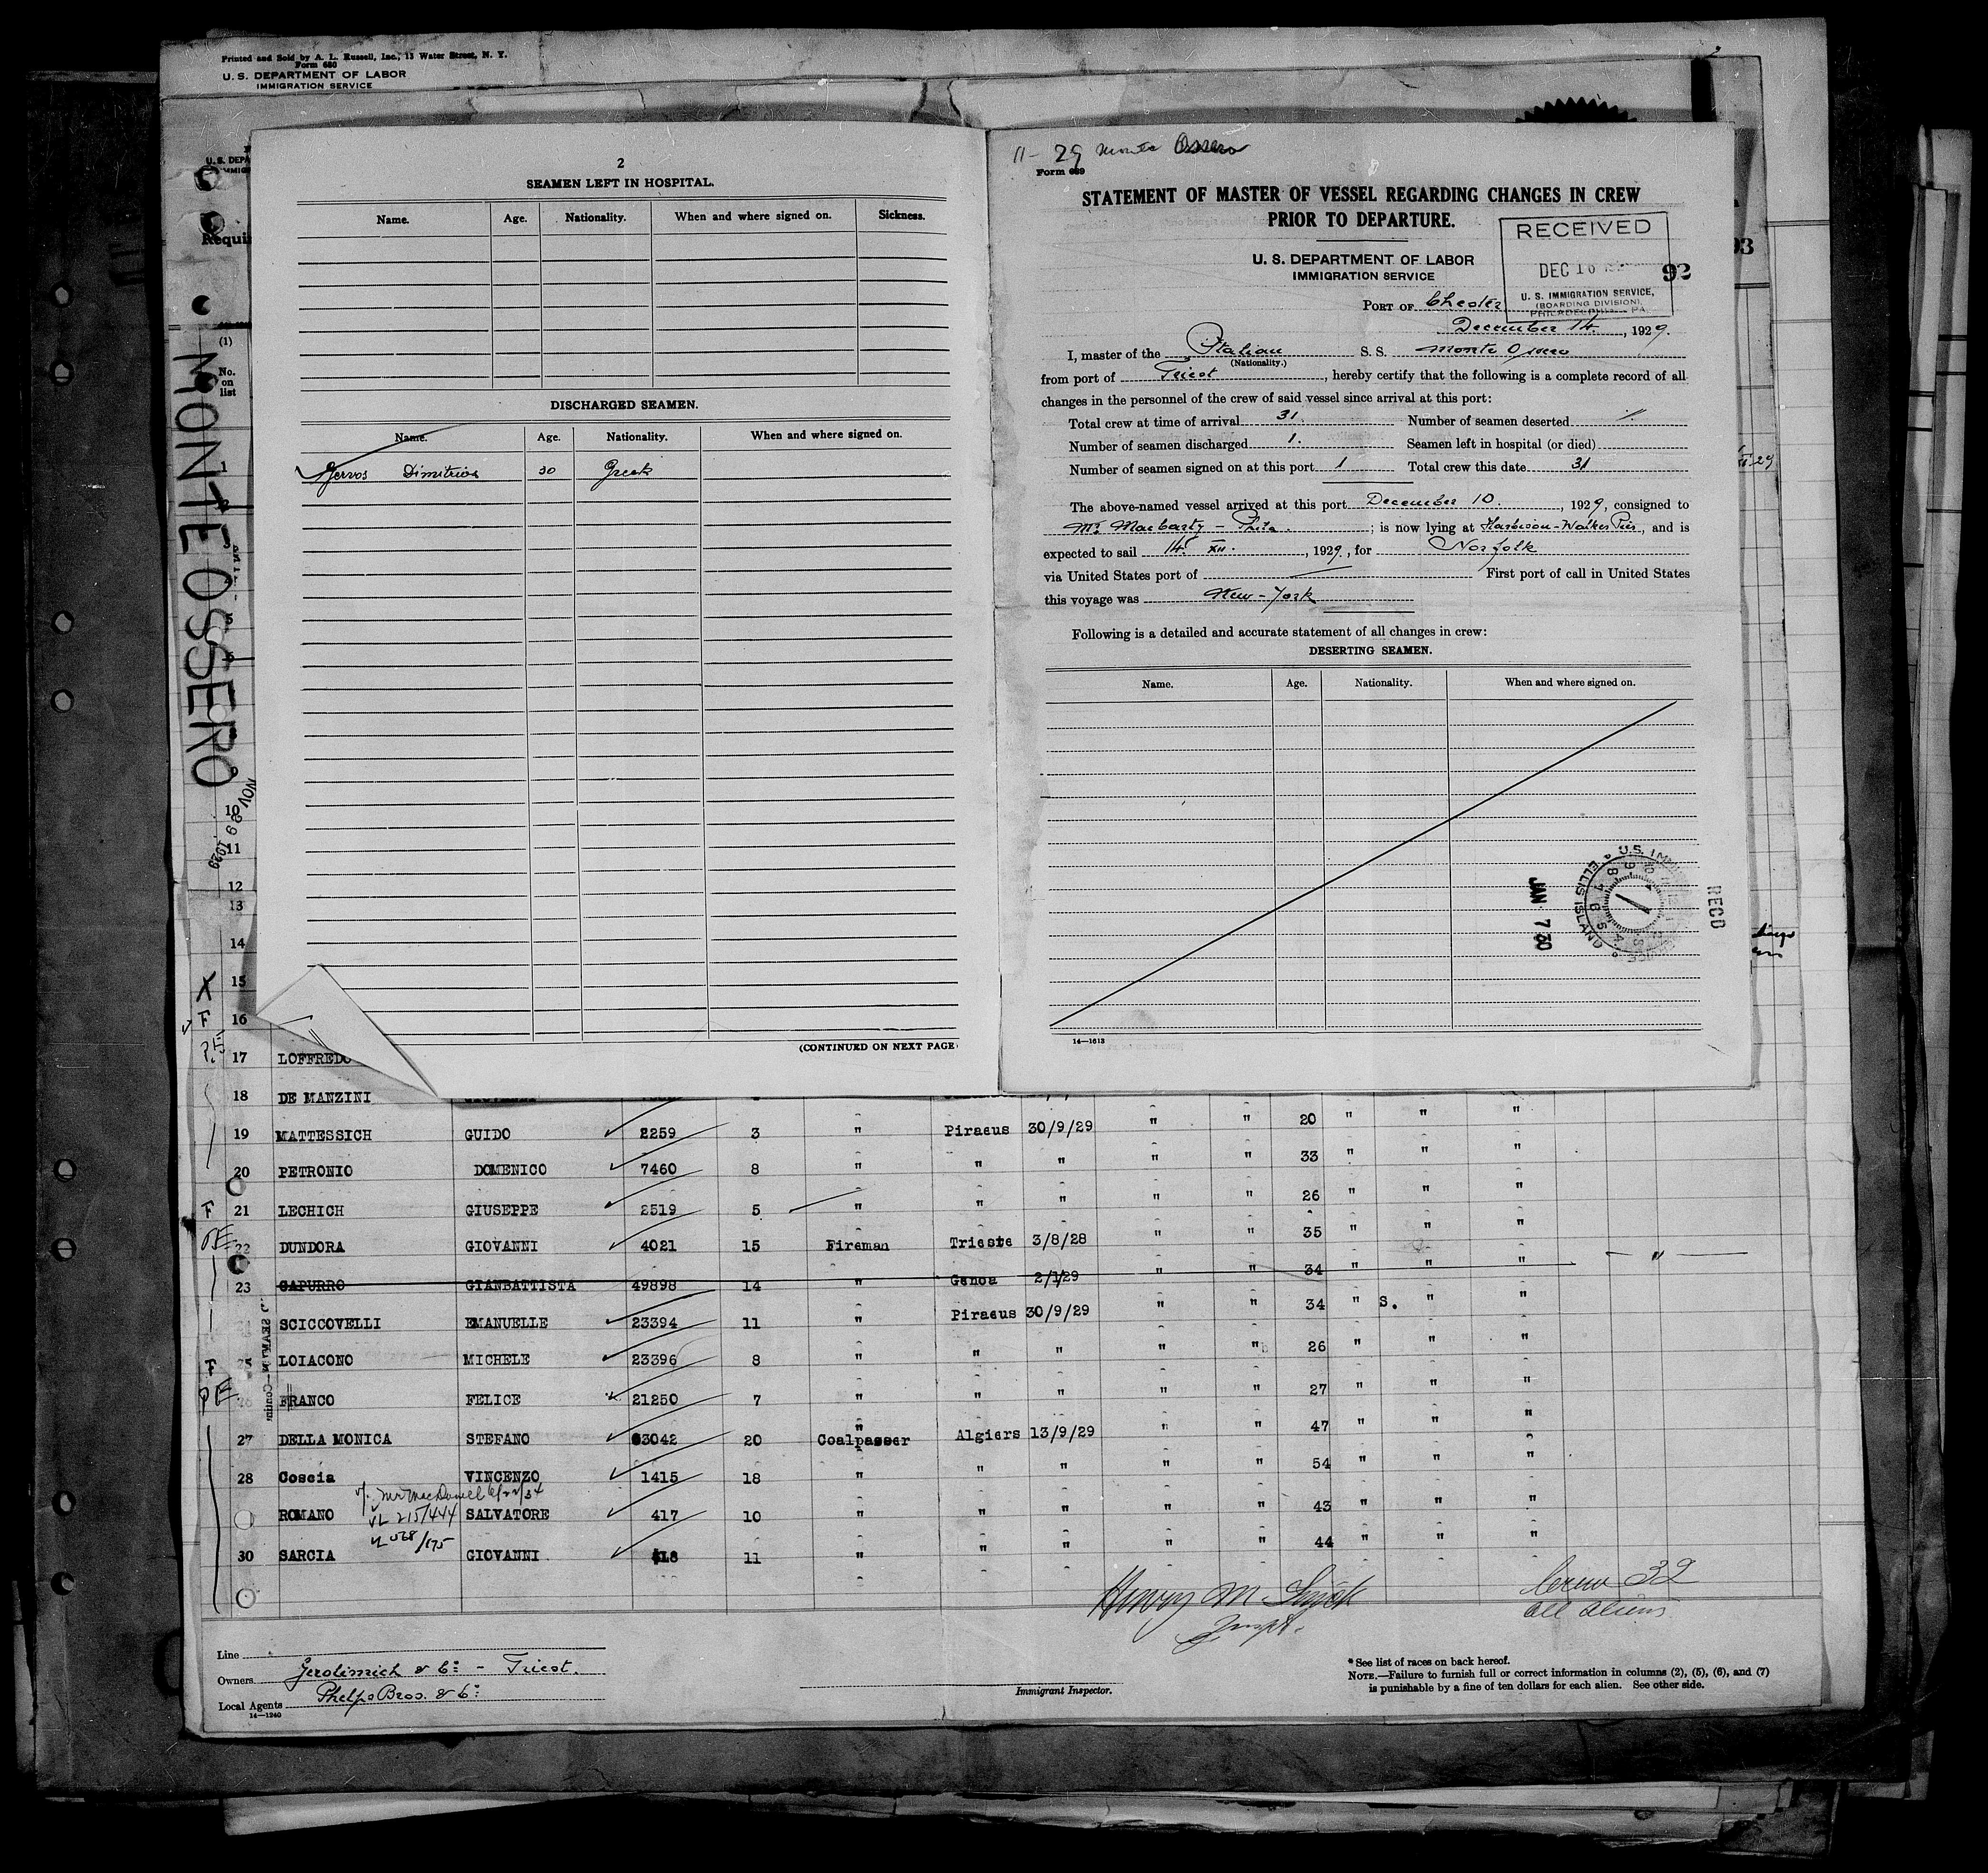 Printed and Sold by A. L. Russell, Inc., 13 Water Street, N. Y.
Form 680
U. S. DEPARTMENT OF LABOR
IMMIGRATION SERVICE
U. S. DEPA
Requi
MONTE OSSERO
NOV 29 1929
(1)
No.
on
list
2
SEAMEN LEFT IN HOSPITAL.
Name. Age. Nationality. When and where signed on. Sickness.
DISCHARGED SEAMEN.
Name. Age. Nationality. When and where signed on.
Dimitrios 30 Greek
(CONTINUED ON NEXT PAGE)
11-29 Monte Ossero
Form 689
STATEMENT OF MASTER OF VESSEL REGARDING CHANGES IN CREW
PRIOR TO DEPARTURE.
RECEIVED
DEC 16
U. S. IMMIGRATION SERVICE,
(BOARDING DIVISION),
PHILADELPHIA PA.
92
93
U. S. DEPARTMENT OF LABOR
IMMIGRATION SERVICE
PORT OF Chester
December 14, 1929.
I, master of the Italian S. S. Monte Ossero
(Nationality.)
from port of Triest, hereby certify that the following is a complete record of all
changes in the personnel of the crew of said vessel since arrival at this port:
Total crew at time of arrival 31. Number of seamen deserted /.
Number of seamen discharged 1. Seamen left in hospital (or died)
Number of seamen signed on at this port 1 Total crew this date 31
The above-named vessel arrived at this port December 10, 1929, consigned to
Mr. Macbarty - Phila.; is now lying at Harbison-Walker Pier, and is
expected to sail 14 XII., 1929, for Norfolk
via United States port of First port of call in United States
this voyage was New-York
Following is a detailed and accurate statement of all changes in crew:
DESERTING SEAMEN.
Name. Age. Nationality. When and where signed on.
U.S. IMM
ELLIS ISLAND
JAN 7 30
RECD
14—1613
1
5
10
11
12
13
14
X 15
F 16
P.E 17 LOFFREDO
18 DE MANZINI
19 MATTESSICH GUIDO 2259 3 " Piraeus 30/9/29 " " 20 " " "
20 PETRONIO DOMENICO 7460 8 " " " " " 33 " " "
F 21 LECHICH GIUSEPPE 2519 5 " " " " " 26 " " "
P.E 22 DUNDORA GIOVANNI 4021 15 Fireman Trieste 3/8/28 " " 35 " " "
23 CAPURRO GIANBATTISTA 49898 14 " Genoa 2/1/29 " " 34 " " " "
SCICCOVELLI EMANUELLE 23394 11 " Piraeus 30/9/29 " " 34 " S. " "
F 25 LOIACONO MICHELE 23396 8 " " " " " 26 " " "
P.E 26 FRANCO FELICE 21250 7 " " " " " 27 " " "
27 DELLA MONICA STEFANO 63042 20 Coalpasser Algiers 13/9/29 " " 47 " " "
28 Coscia VINCENZO 1415 18 " " " " " 54 " " "
ROMANO VL 215/444 SALVATORE 417 10 " " " " " 43 " " "
30 SARCIA GIOVANNI 418 11 " " " " " 44 " " "
Crew 32
all aliens
Line
Owners Gerolimich & Co. - Triest.
Local Agents Phelps Bros. & Co.
14—1240
Immigrant Inspector.
* See list of races on back hereof.
NOTE.—Failure to furnish full or correct information in columns (2), (5), (6), and (7)
is punishable by a fine of ten dollars for each alien. See other side.